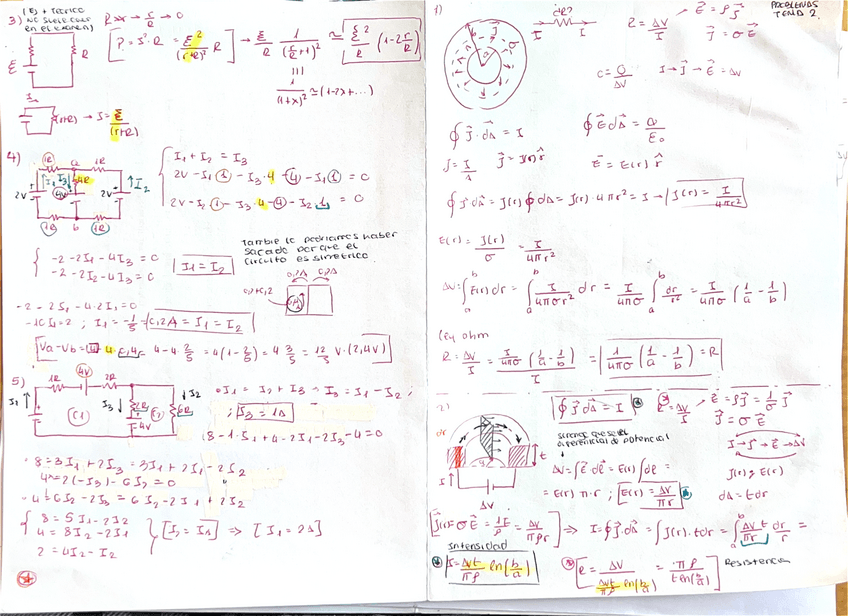 (E) + TEORICO
NO SUELE CAER
en el examen)
3)
R >> r → r/R → 0
[P = I²·R = ε²/(r+R)² R] → ε²/R · 1/(r/R+1)² ≃ [ε²/R (1-2r/R)]
1/(1+x)² ≃ (1-2x+...)
ε
R
I
(r+R) → I = ε/(r+R)
4)
1R a 1R
I₃ 4R
2V 4V 2V ↑I₂
1R b 1R
I₁ + I₂ = I₃
2V - I₁(1) - I₃·4 - (4) - I₁(1) = 0
2V - I₂(1) - I₃·4 - (4) - I₂·1 = 0
{ -2 - 2I₁ - 4I₃ = 0
-2 - 2I₂ - 4I₃ = 0
[I₁ = I₂]
También lo podríamos haber
sacado porque el
circuito es simétrico
0,2A 0,2A
0,2+0,2
-2 - 2I₁ - 4·2I₁ = 0
-10I₁ = 2 ; I₁ = -1/5 = [0,2A = I₁ = I₂]
4 - 4·2/5 = 4(1-2/5) = 4 3/5 = 12/5 V (2,4V)
5)
1R 4V 2R
I₁↑ C1 I₃↓ 2R C2 ↓I₂
4V 6R
I₁ = I₂ + I₃ → I₃ = I₁ - I₂ ;
; [I₃ = 1A]
8 - 1·I₁ + 4 - 2I₁ - 2I₃ - 4 = 0
· 8 = 3I₁ + 2I₃ = 3I₁ + 2I₁ - 2I₂
4 - 2(-I₃) - 6I₂ = 0
· 4 = 6I₂ - 2I₃ = 6I₂ - 2I₁ + 2I₂
{ 8 = 5I₁ - 2I₂
4 = 8I₂ - 2I₁
2 = 4I₂ - I₁
} [I₂ = 1A] ⇒ [I₁ = 2A]
PROBLEMAS
TEMA 2.
1)
¿R?
I I
R = ΔV/I
E⃗ = ρJ⃗
J⃗ = σE⃗
C = Q/ΔV
I → J⃗ → E⃗ = ΔV
∮J⃗·dA⃗ = I
∮E⃗dA⃗ = Q/ε₀
J = I/A
J⃗ = J(r) r̂
E⃗ = E(r) r̂
∮J⃗dA⃗ = J(r)∮dA = J(r)·4πr² = I → [J(r) = I/4πr²]
E(r) = J(r)/σ = I/4πσr²
ΔV = ∫ₐᵇ E(r) dr = ∫ₐᵇ I/4πσr² dr = I/4πσ ∫ₐᵇ dr/r² = I/4πσ (1/a - 1/b)
Ley ohm
R = ΔV/I = I/4πσ (1/a - 1/b)/I = [1/4πσ (1/a - 1/b) = R]
2)
[∮J⃗dA⃗ = I]
R = ΔV/I
E⃗ = ρJ⃗ = 1/σ J⃗
J⃗ = σE⃗
dr
t
I
ΔV
diferencial de potencial
I → J⃗ → E⃗ → ΔV
J(r) y E(r)
dA = t dr
ΔV = ∫E⃗·dl⃗ = E(r)∫dl =
= E(r) π·r ; [E(r) = ΔV/πr]
[J(r) = σE⃗ = 1/ρ E = ΔV/πρr] ⇒ I = ∮J⃗·dA = ∫J(r)·t dr = ∫ₐᵇ ΔV t/πρ dr/r =
Intensidad
[I = ΔVt/πρ ln(b/a)]
[R = ΔV/(ΔVt/πρ ln(b/a)) = πρ/(t ln(b/a))]
Resistencia